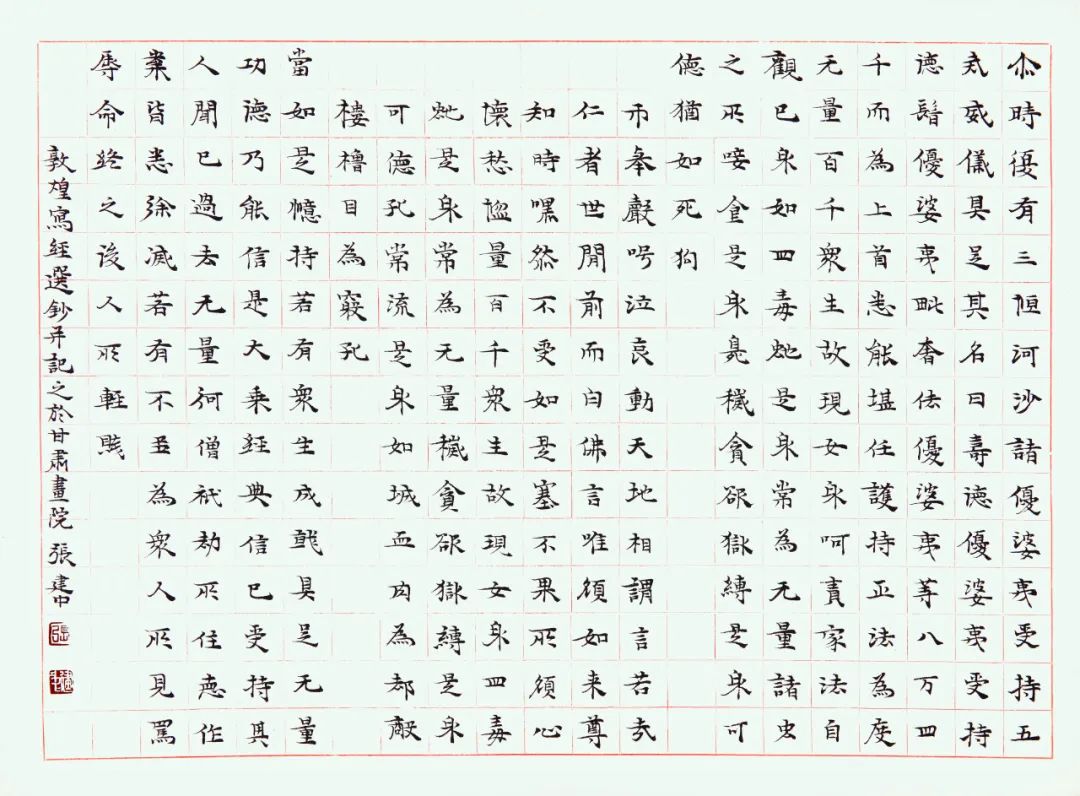 尒時復有三恒河沙諸優婆夷受持五
戒威儀具足其名曰壽德優婆夷受持
德鬘優婆夷毗奢佉優婆夷等八万四
千而為上首悉能堪任護持正法為度
无量百千衆生故現女身呵責家法自
觀已身如四毒虵是身常為无量諸虫
之所唼食是身臭穢貪欲獄縛是身可
德猶如死狗
帀舉聲号泣哀動天地相謂言若哉
仁者世閒前而白佛言唯願如来尊
知時嘿然不受如是塞不果所願心
懷愁惱量百千衆生故現女身四毒
虵是身常為无量穢貪欲獄縛是身
可德孔常流是身如城血肉為却敵
樓櫓目為竅孔
當如是憶持若有衆生成就具足无量
功德乃能信是大乘經典信已受持其
人聞已過去无量阿僧祇劫所住惡作
業皆悉除滅若有不為衆人所見罵
辱命終之後人所輕賤
敦煌寫經選鈔并記之於甘肅畫院張建中